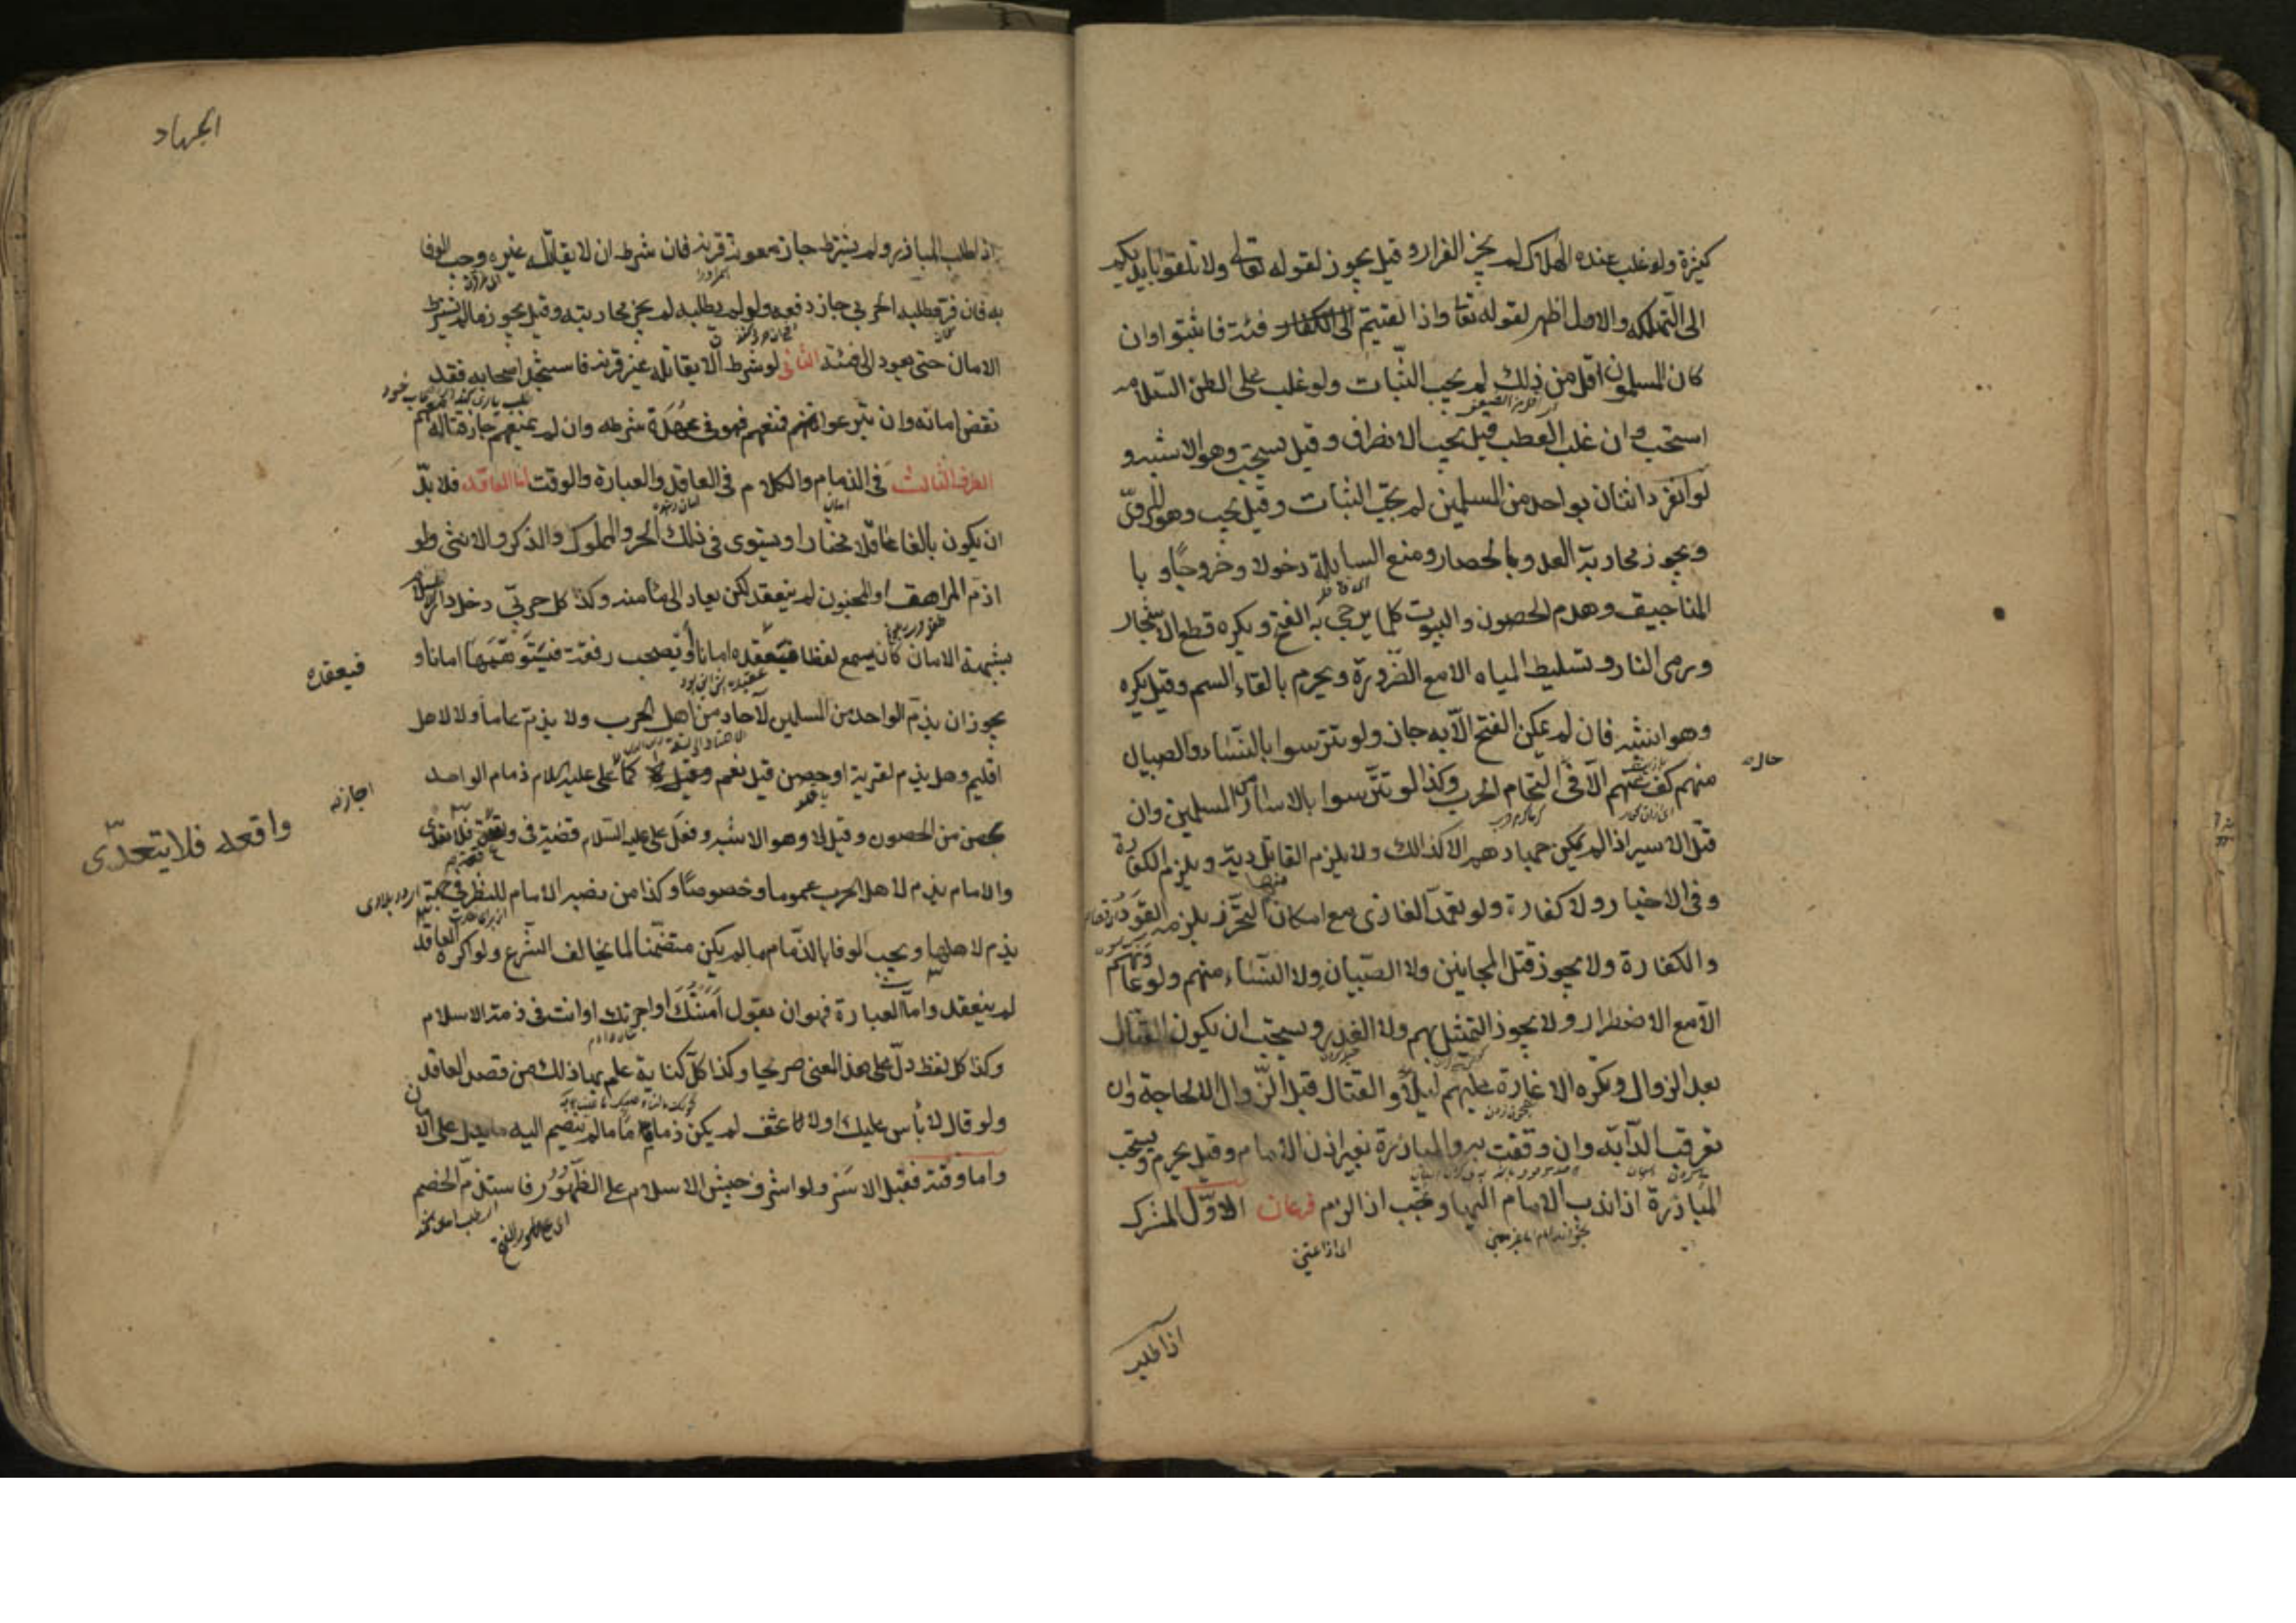 كثيرة ولو غلب عنده الهلاك لم يجز الفرار وقيل يجوز لقوله تعالى ولا تلقوا بايديكم
الى التهلكة والاول اظهر لقوله تعا واذا لقيتم فئة فاثبتوا وان
كان المسلمون اقل من ذلك لم يجب الثبات ولو غلب على الظن السلامه
استحب وان غلب العطب قيل يجب الانصراف وقيل يستحب وهو الاشبه و
لو انفرد اثنان بواحد من المسلمين لم يجب الثبات وقيل يجب وهو المروي
ويجوز محاربة العدو بالحصار ومنع السابلة دخولا وخروجا وبا
المناجيق وهدم الحصون والبيوت كلما يرجى به الفتح ويكره قطع الاشجار
ورمى النار وتسليط المياه الا مع الضرورة ويحرم بالقاء السم وقيل يكره
وهو اشبه فان لم يمكن الفتح الا به جاز ولو تترسوا بالنساء والصبيان
منهم كف عنهم الا فى التحام الحرب وكذا لو تترسوا بالاسارى من المسلمين وان
حال
قتل الاسير اذا لم يمكن جهادهم الا كذالك ولا يلزم القاتل دية ويلزم الكفارة
وفى الاخبار ولا كفارة ولو تعمد الغازى مع امكان التحرز يلزمه القود
منها
والكفارة ولا يجوز قتل المجانين ولا الصبيان ولا النساء منهم ولو عاونهم
الا مع الاضطرار ولا يجوز التمثيل بهم ولا الغدر ويستحب ان يكون القتال
بعد الزوال وتكره الاغارة عليهم ليلا والقتال قبل الزوال الا لحاجة وان
تعرقب الدآبة وان وقفت به والمبارزة بغير اذن الامام وقيل يحرم ويستحب
المبارزة اذا ندب الامام اليها وتجب اذا لزم فرعان الاول المشرك
اذا طلب
الجهاد
اذا طلب المبارزة ولم يشترط جاز معونة قرنه فان شرط ان لا يقاتله غيره وجب الوفا
به فان فر فطلبه الحربي جاز دفعه ولو لم يطلبه لم يجز محاربته وقيل يجوز مالم يشترط
الامان حتى يعود الى فئته الثانى لو شرط الا يقاتله غير قرنه فاستنجد اصحابه فقد
نقض امانه وان تبرعوا فمنعهم فهو فى عهدة شرطه وان لم يمنعهم جاز قتاله معهم
الطرف الثالث فى الذمام والكلام فى العاقد والعبارة والوقت اما العاقد فلا بد
ان يكون بالغا عاقلا مختارا ويستوى فى ذلك الحر والمملوك والذكر والانثى ولو
اذم المراهق او المجنون لم ينعقد لكن يعاد الى مأمنه وكذا كل حربي دخل دار الاسلام
بشبهة الامان كان يسمع لفظا فيعقده امانا او يصحب رفقة فيتوهمها امانا و
فيعقده
يجوز ان يذم الواحد من المسلمين لآحاد من اهل الحرب ولا يذم عاما ولا لاهل
اقليم وهل يذم لقرية او حصن قيل نعم كما على عليه السلام ذمام الواحد
اجاز
لحصن من الحصون وقيل لا وهو الاشبه وفعل على عليه السلام قضية فى
واقعه فلا يتعدى
والامام يذم لاهل الحرب عموما وخصوصا وكذا من نصبه الامام للنظر فى جهة
يذم لاهلها ويجب الوفا بالذمام مالم يكن متضمنا لما يخالف الشرع ولو اكره العاقد
لم ينعقد واما العبارة فهو ان يقول امنتك او اجرتك او انت فى ذمة الاسلام
وكذا كل لفظ دل على هذ المعنى صريحا وكذا كل كناية علم بها ذلك من قصد العاقد
ولو قال لا بأس عليك او لا تخف لم يكن ذماما مالم ينضم اليه مايدل على الامان
واما وقته فقبل الاسر ولو اشرف جيش الاسلام على الظهور فاستذم الخصم